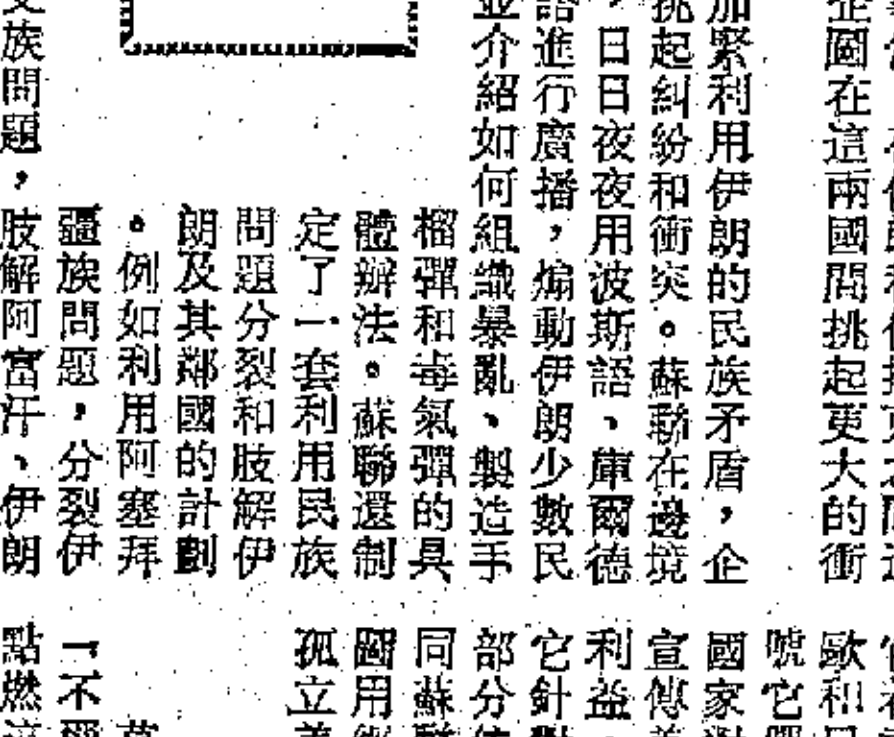 企圖在這兩國間挑起更大的衝
加緊利用伊朗的民族矛盾，企
挑起糾紛和衝突。蘇聯在邊境
，日日夜夜用波斯語、庫爾德
語進行廣播，煽動伊朗少數民
並介紹如何組織暴亂、製造手
榴彈和毒氣彈的具
體辦法。蘇聯還制
定了一套利用民族
問題分裂和肢解伊
朗及其鄰國的計劃
。例如利用阿塞拜
疆族問題，分裂伊
族問題，肢解阿富汗、伊朗
歐和
號它
國家對
宣傳
利益
它針對
部分
同蘇聯
圖用
孤立
「不
點燃